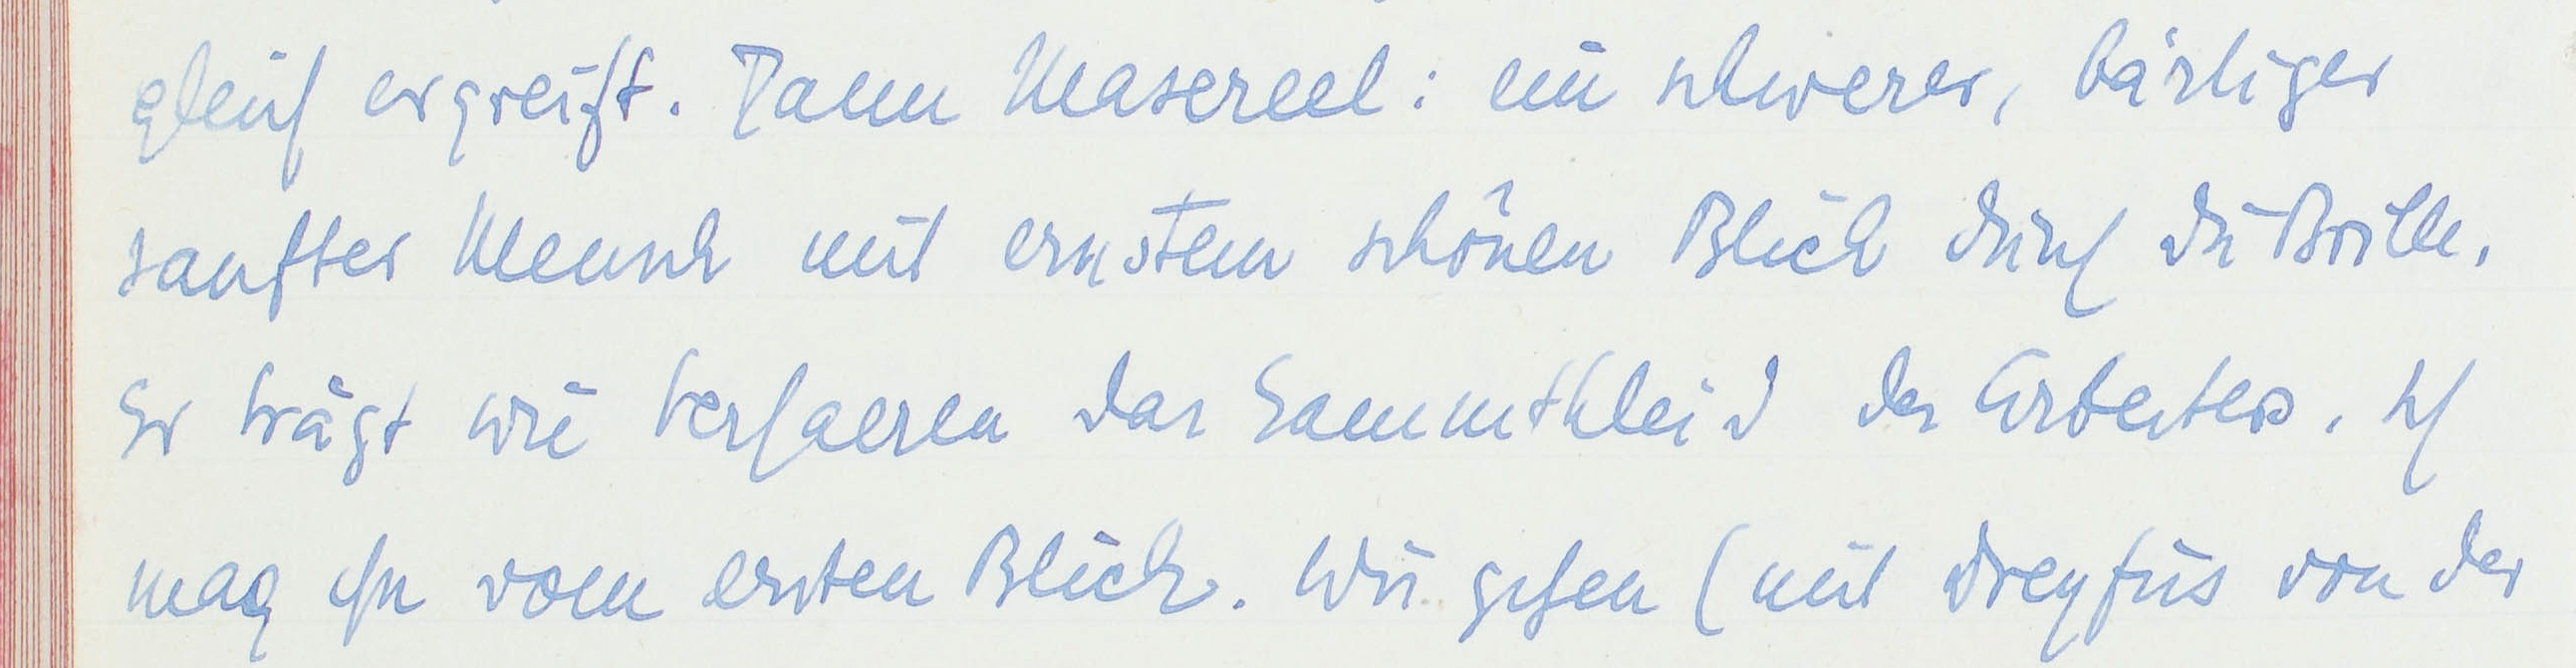 gleich ergreift. Dann Masereel: ein schwerer, bärtiger
sanfter Mensch mit ernstem schönen Blick durch die Brille.
Er trägt wie Verhaeren das Sammtkleid der Arbeiter. Ich
mag ihn vom ersten Blick. Wir gehen (mit Dreyfus von der